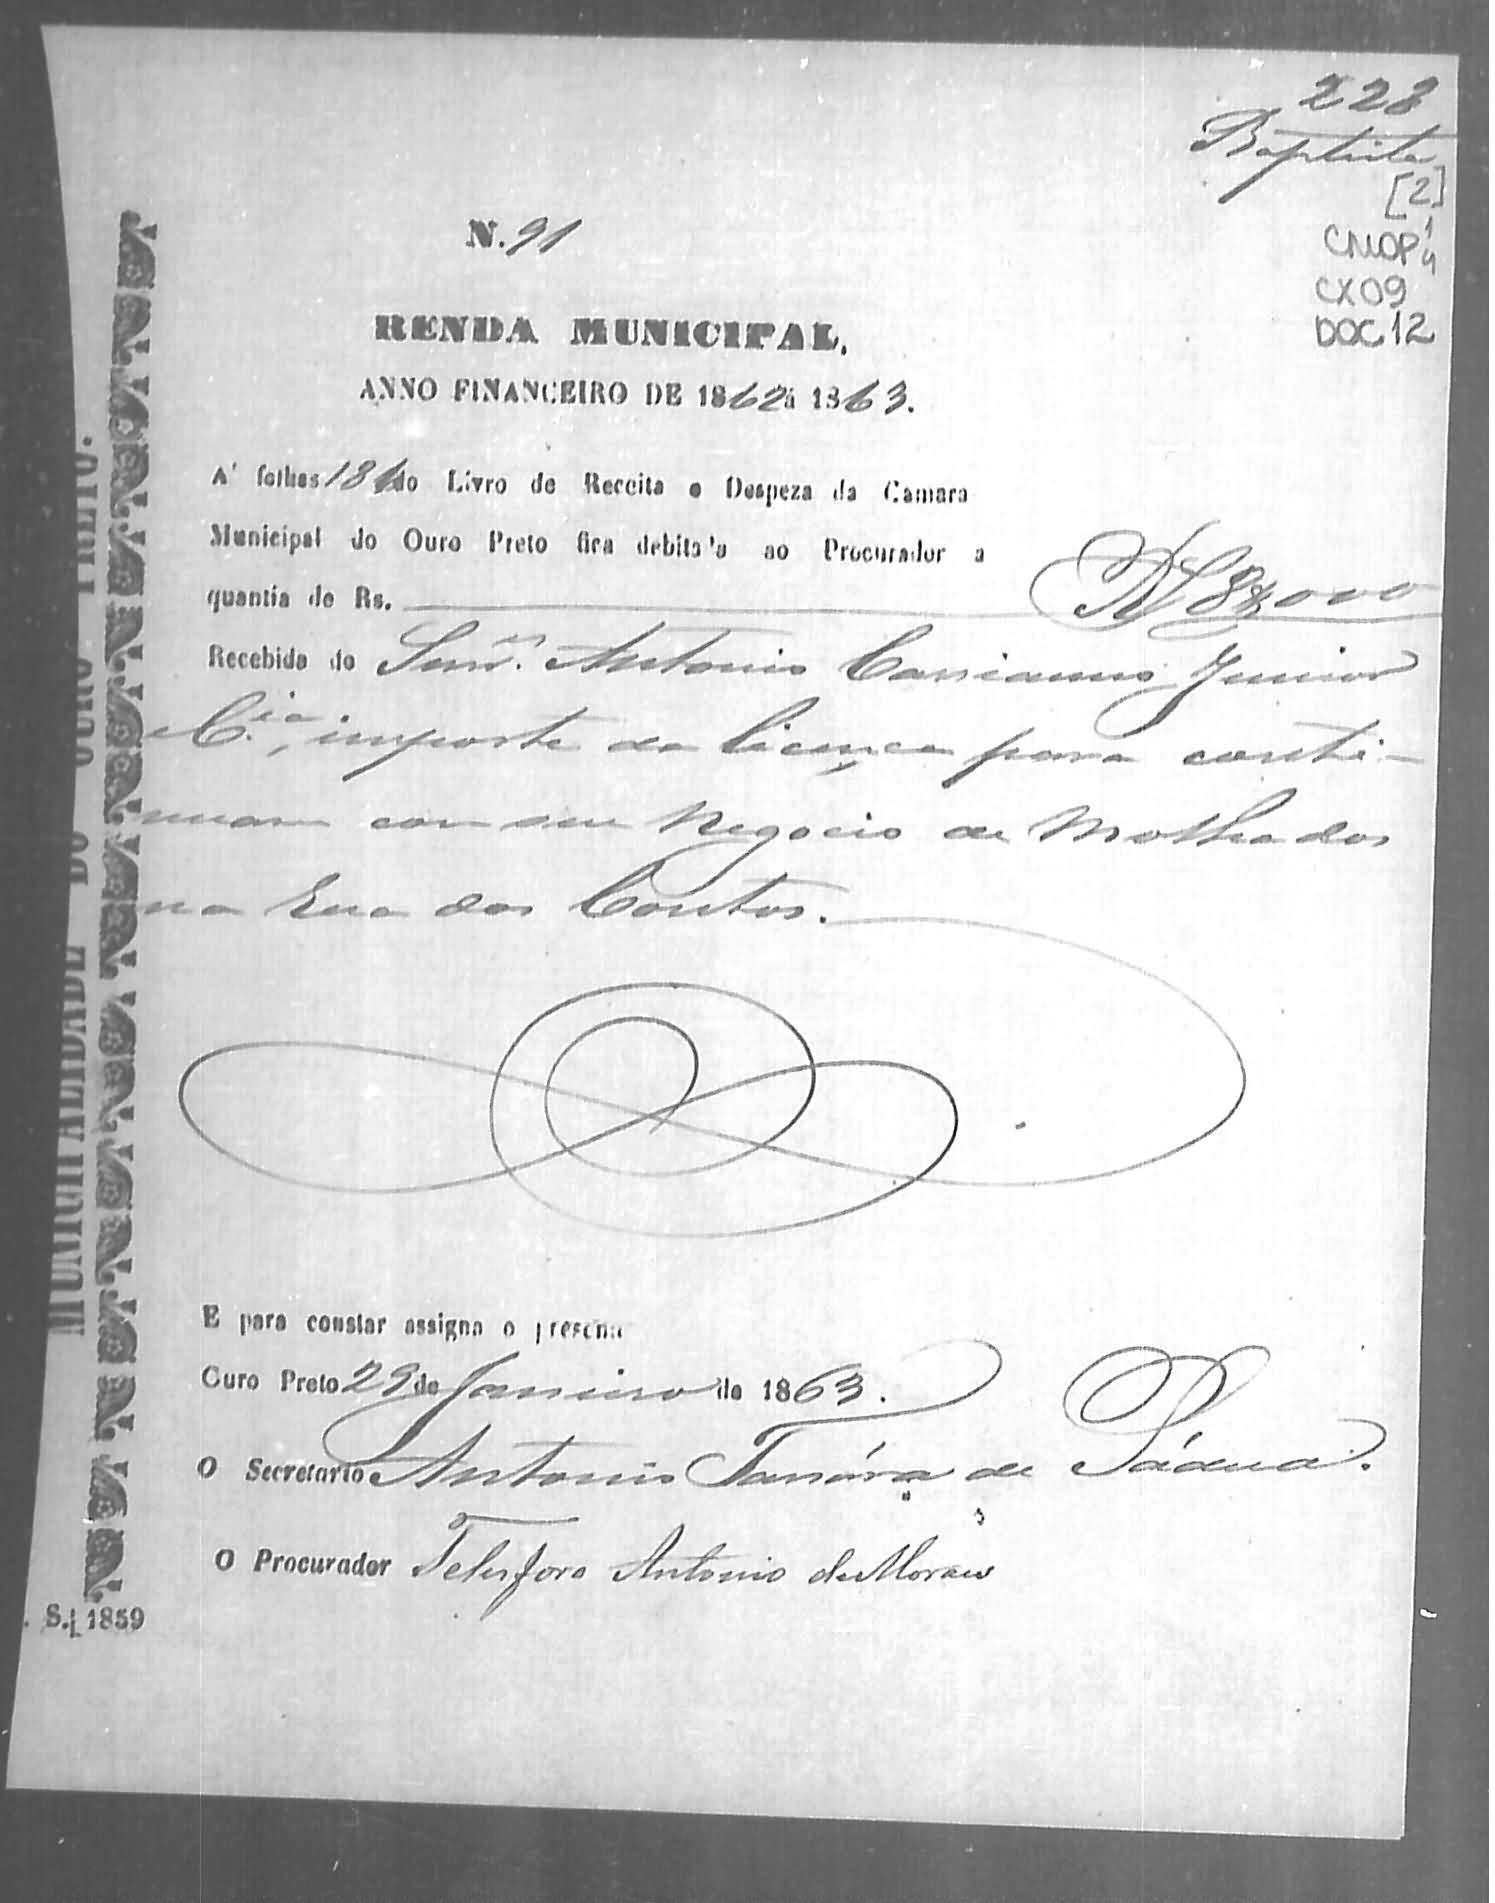 228
Baptista
[2]
CMOP 1/4
CX 09
DOC 12
N. 91
RENDA MUNICIPAL.
ANNO FINANCEIRO DE 1862 á 1863.
A' folhas 181 do Livro de Receita e Despeza da Camara
Municipal do Ouro Preto fica debitado ao Procurador a
quantia de Rs. Rs 8$000
Recebida do Senr. Antonio Cassianno Junior
& C.ia, importe da licença para conti-
nuar com seu Negocio de Molhados
na Rua dos Contos.
E para constar assigna o presente
Ouro Preto 29 de Janeiro de 1863.
O Secretario Antonio de Pádua.
O Procurador Telesforo Antonio de Moraes
S. 1859
MUNICIPALIDADE DO OURO PRETO.